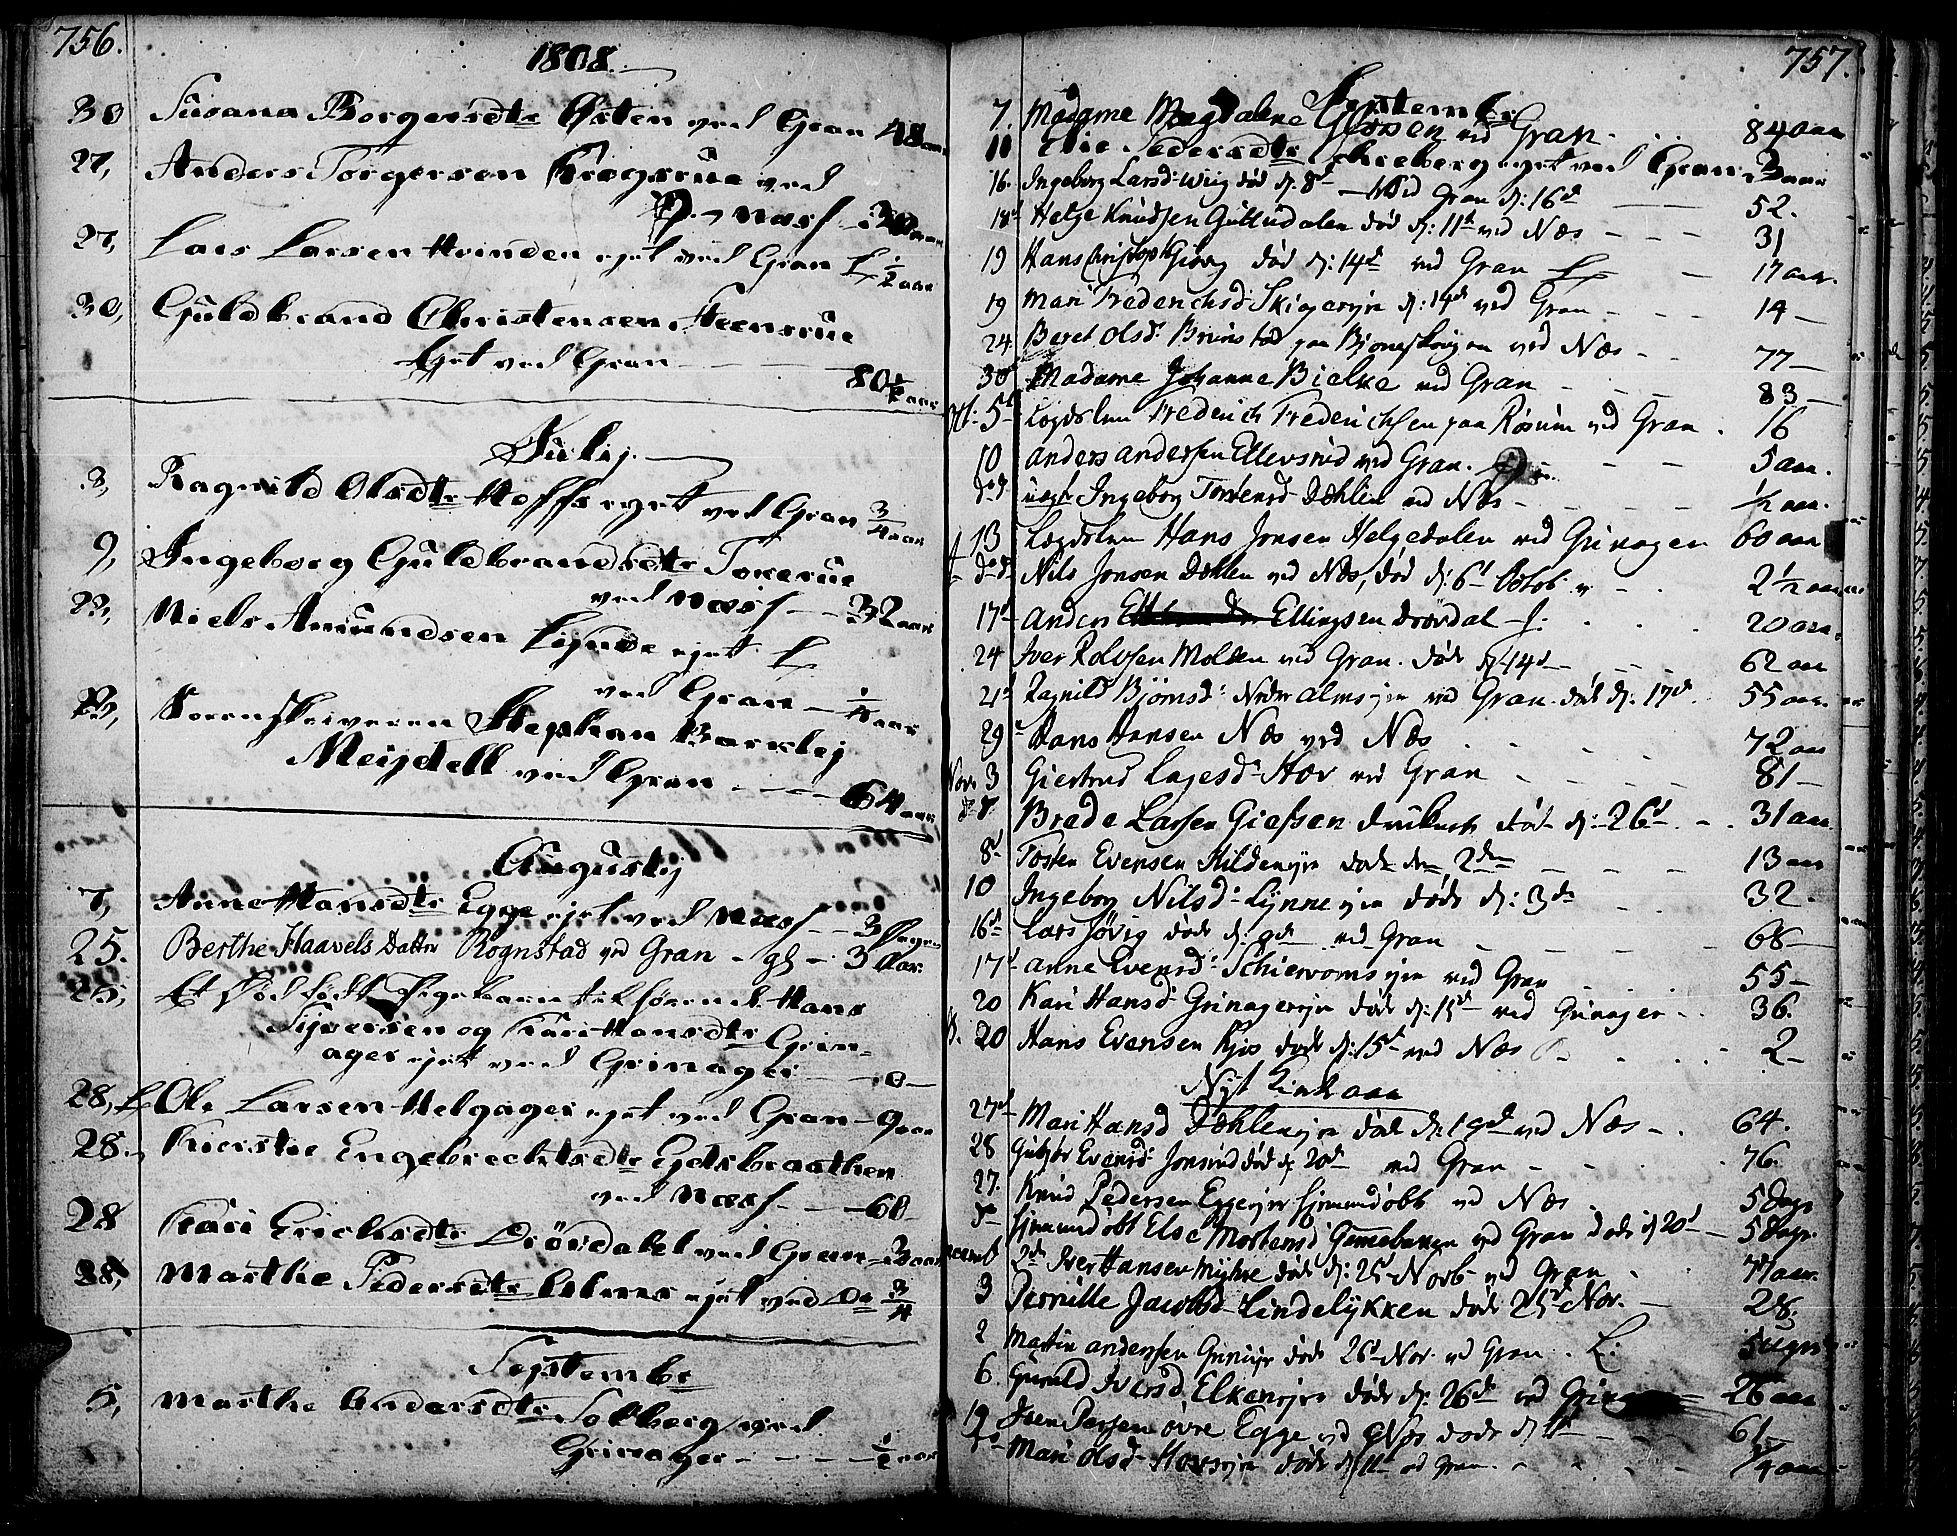 756.
1808.
30 Susana Borgersdtr Østen ved Gran 48 aar
27, Anders Torgersen Krogsrue ved
Næss - 30 aar
27, Lars Larsen Hvinden ejet ved Gran ½ aar
30, Guldbrand Christensen Steensrue
Ejet ved Gran - - - 80½ aar
Julij.
3, Ragnild Olsdtr Hoffs ejet ved Gran ¾ aar
9, Ingeborg Guldbrandsdtr Torerue
ved Næss - - 32 aar
22, Niels Amundsen Lysnde ejet
ved Gran - ¼ aar
Sorenskriveren Stephan Barklej
Mejdell ved Gran - - - 64 aar
Augustij
7, Anne Hansdtr Egge ejet ved Næss - - 3 Dage
25. Berthe Haavels Datter Rognstad ved Gran - 3 Aar.
25, Et Død født Pigebarn tilhørende Hans
Syversen og Kari Hansdtr Grin-
ager ejet ved Grinager - - 0 -
28, Ole Larsen Helgager ejet ved Gran - 9 aar
28., Kierstie Engebrechtsdtr Egtsbraathen
ved Næss - - - 60 -
28 Kari Erichsdtr Drövdahl ved Gran - 3 aar
28, Marthe Pedersdtr Almes ejet ved Do ¾
Septembr
5, Marthe Andersdtr Solberg ved
Grinager - - - - ½ aar
757.
Septembr
7. Madame Magdalene Gløssen ved Gran - . . 84 aar
11 Elie Pedersdtr Schreberg ejet ved Gran 3 aar
16. Ingeborg Larsd: Wiig død d. 8d - ved Gran d: 16d - - 52.
18d Helge Knudsen Gulludalen død d: 11t ved Næs - - - 31
19 Hans Christoph Giövg død d: 14d ved Gran - 17 aar.
19 Mari Frederichsd: Skigersejn d: 14d ved Gran - - - 14 -
24 Beret Olsd: Brunstad paa Bjoneskougen ved Næs - - 77 -
30d Madame Johanne Bielke ved Gran - - - 83 -
Oct: 5d Lægdslem Frederich Frederichsen paa Rosum ved Gran . 16
10 Anders Andersen Ellevsrud ved Gran. - - - 5 aar.
dod uægte Ingeborg Torstensd: Dæhlen ved Næs - - - - - ½ aar.
13 Lægdslem Hans Jonsen Helgedalen ved Grinager 60 aar
dod Nils Jonsen Dæhlen ved Næs, død d: 6t Octob. - . 2½ aar
17d Anders Ellingsen Drövdal - . . . 20 aar.
24 Iver Rolvsen Molden ved Gran. døde d 14d - - - 62 aar
21d Ragnild Bjørnsd: Nedre Almsejn ved Gran. døde d: 17d . 55 aar.
29 Hans Hansen Næs ved Næs . . . . 72 aar
Nov 3 Giertrud Lagesd: Hov ved Gran - - - - 81 -
do 8 Brede Larsen Giefsen druknede døde d: 26d - . 31 aar.
8d Tosten Evensen Kildeejn døde den 2den - - - 13 aar
10 Ingeborg Nilsd: Lynneejn døde d: 3de - - 32.
16d Lars Jövig døde d: 9de ved Gran - - - 68 -
17d Anne Evensd: Schiervomsejn ved Gran . . . 55 -
20 Kari Hansd: Grinagersejn døde d: 15d ved Grinager . . 36.
20 Hans Evensen Kjos døde d: 15d ved Næs . . . 2 -
Nyt Kirkeaar
27d Mari Hansd Dæhleneje døde d. 19d ved Næs - . 64.
28 Gubjør Evensd: Jonsrud død d 20d ved Gran - - . 76.
27. Knud Pedersen Eggeejn hjemmedöbt ved Næs . . 5 Dage
do hjemmedöbt Else Mortensd: Gamebakken ved Gran døde d 20d - 5 Dage
2d Iver Hansen Myhre døde d: 25 Novb ved Gran . 77 aar.
3 Pernille Jacobsd: Lindelykken døde 25d Nov. - 28.
2 Martin Andersen Grinieje døde 26d Nov. ved Gran . 5 uger
6. Gunild Iversd. Elkenejn døde d: 26d ved Grinager 26 aar
19 Iven Larsen övre Egge ved Næs døde d 11t - - . 61 -
do Mari Olsd: Hovsejn døde d 11t ved Gran. - - - ¼ aar